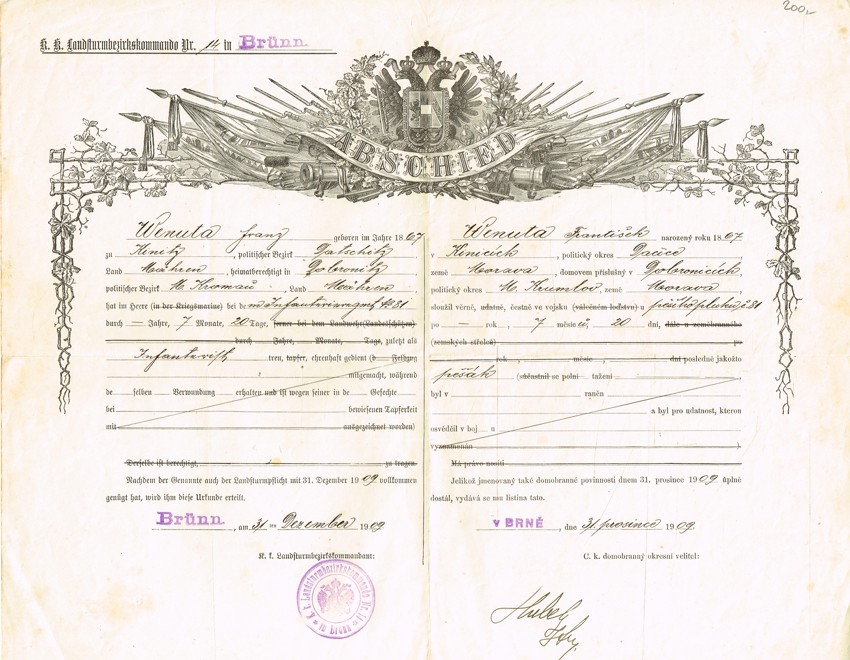 200,-
K. K. Landsturmbezirkskommando Nr. 14 in Brünn.
ABSCHIED
Wenuta Franz geboren im Jahre 1867
zu Kinitz, politischer Bezirk Datschitz,
Land Mähren, heimatberechtigt in Dobronitz,
politischer Bezirk M. Kromau, Land Mähren
hat im Heere (in der Kriegsmarine) bei dem Infanterieregmt. № 81
durch — Jahre, 7 Monate, 20 Tage, ferner bei dem Landwehr(Landesschützen)
durch Jahre, Monate, Tage, zuletzt als
Infanterist treu, tapfer, ehrenhaft gedient (d Feldzug
mitgemacht, während
de selben Verwundung erhalten und ist wegen seiner in de Gefechte
bei bewiesenen Tapferkeit
mit ausgezeichnet worden)
Derselbe ist berechtigt, zu tragen.
Nachdem der Genannte auch der Landsturmpflicht mit 31. Dezember 1909 vollkommen
genügt hat, wird ihm diese Urkunde erteilt.
Brünn., am 31 ten Dezember 1909
K. k. Landsturmbezirkskommandant:
K. k. Landsturmbezirkskommando Nr. 14 in Brünn
Wenuta František narozený roku 1867
v Kinicích, politický okres Dačice
země Morava domovem příslušný v Dobronicích,
politický okres M. Krumlov, země Morava,
sloužil věrně, udatně, čestně ve vojsku (válečném loďstvu) u pěšího pluku č. 81
po — rok, 7 měsíců, 20 dní, dále u zeměbranného
(zemských střelců) po
rok, měsíc, dní posledně jakožto
pěšák (účastnil se polní tažení,
byl v raněn
a byl pro udatnost, kterou
osvědčil v boj u
vyznamenán ).
Má právo nositi
Jelikož jmenovaný také domobranné povinnosti dnem 31. prosince 1909 úplně
dostál, vydává se mu listina tato.
V BRNĚ, dne 31 prosince 1909
C. k. domobranný okresní velitel: